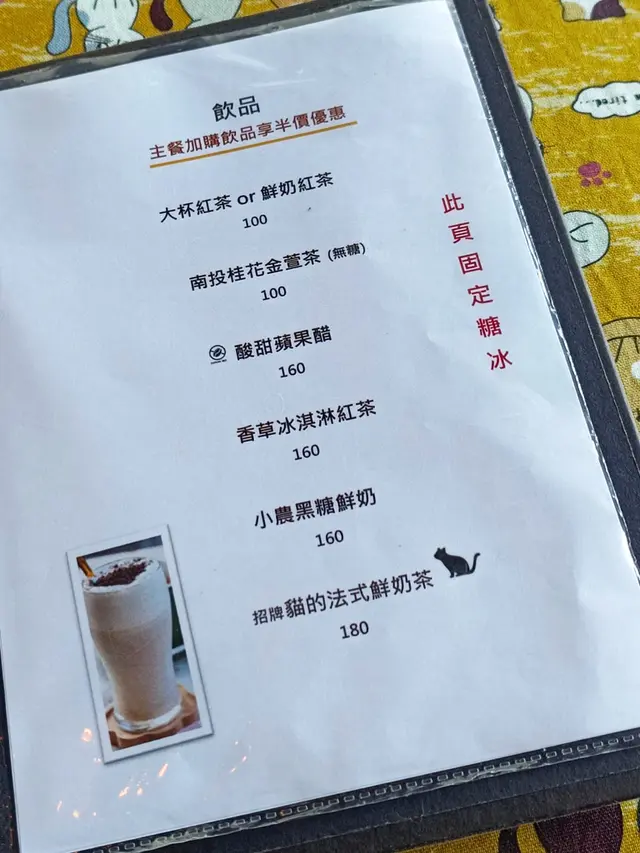 飲品
主餐加購飲品享半價優惠
大杯紅茶 or 鮮奶紅茶
100
南投桂花金萱茶 (無糖)
100
酸甜蘋果醋
160
香草冰淇淋紅茶
160
小農黑糖鮮奶
160
招牌貓的法式鮮奶茶
180
此頁固定糖冰
tired...